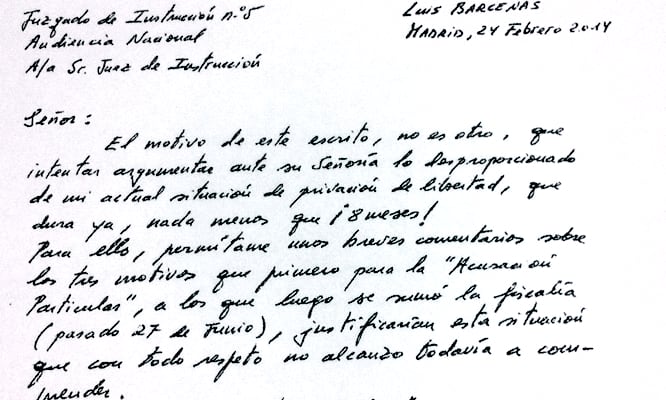 Juzgado de Instrucción nº5
Luis BARCENAS
Audiencia Nacional
MADRID, 24 Febrero 2.014
A/a Sr. Juez de Instrucción
Señor:
El motivo de este escrito, no es otro, que
intentar argumentar ante su Señoría lo desproporcionado
de mi actual situación de privación de libertad, que
dura ya, nada menos que ¡8 meses!
Para ello, permítame unos breves comentarios sobre
los tres motivos que primero para la "Acusación
Particular", a los que luego se sumó la fiscalía
(pasado 27 de Junio), justificarían esta situación
que con todo respeto no alcanzo todavía a com-
prender.